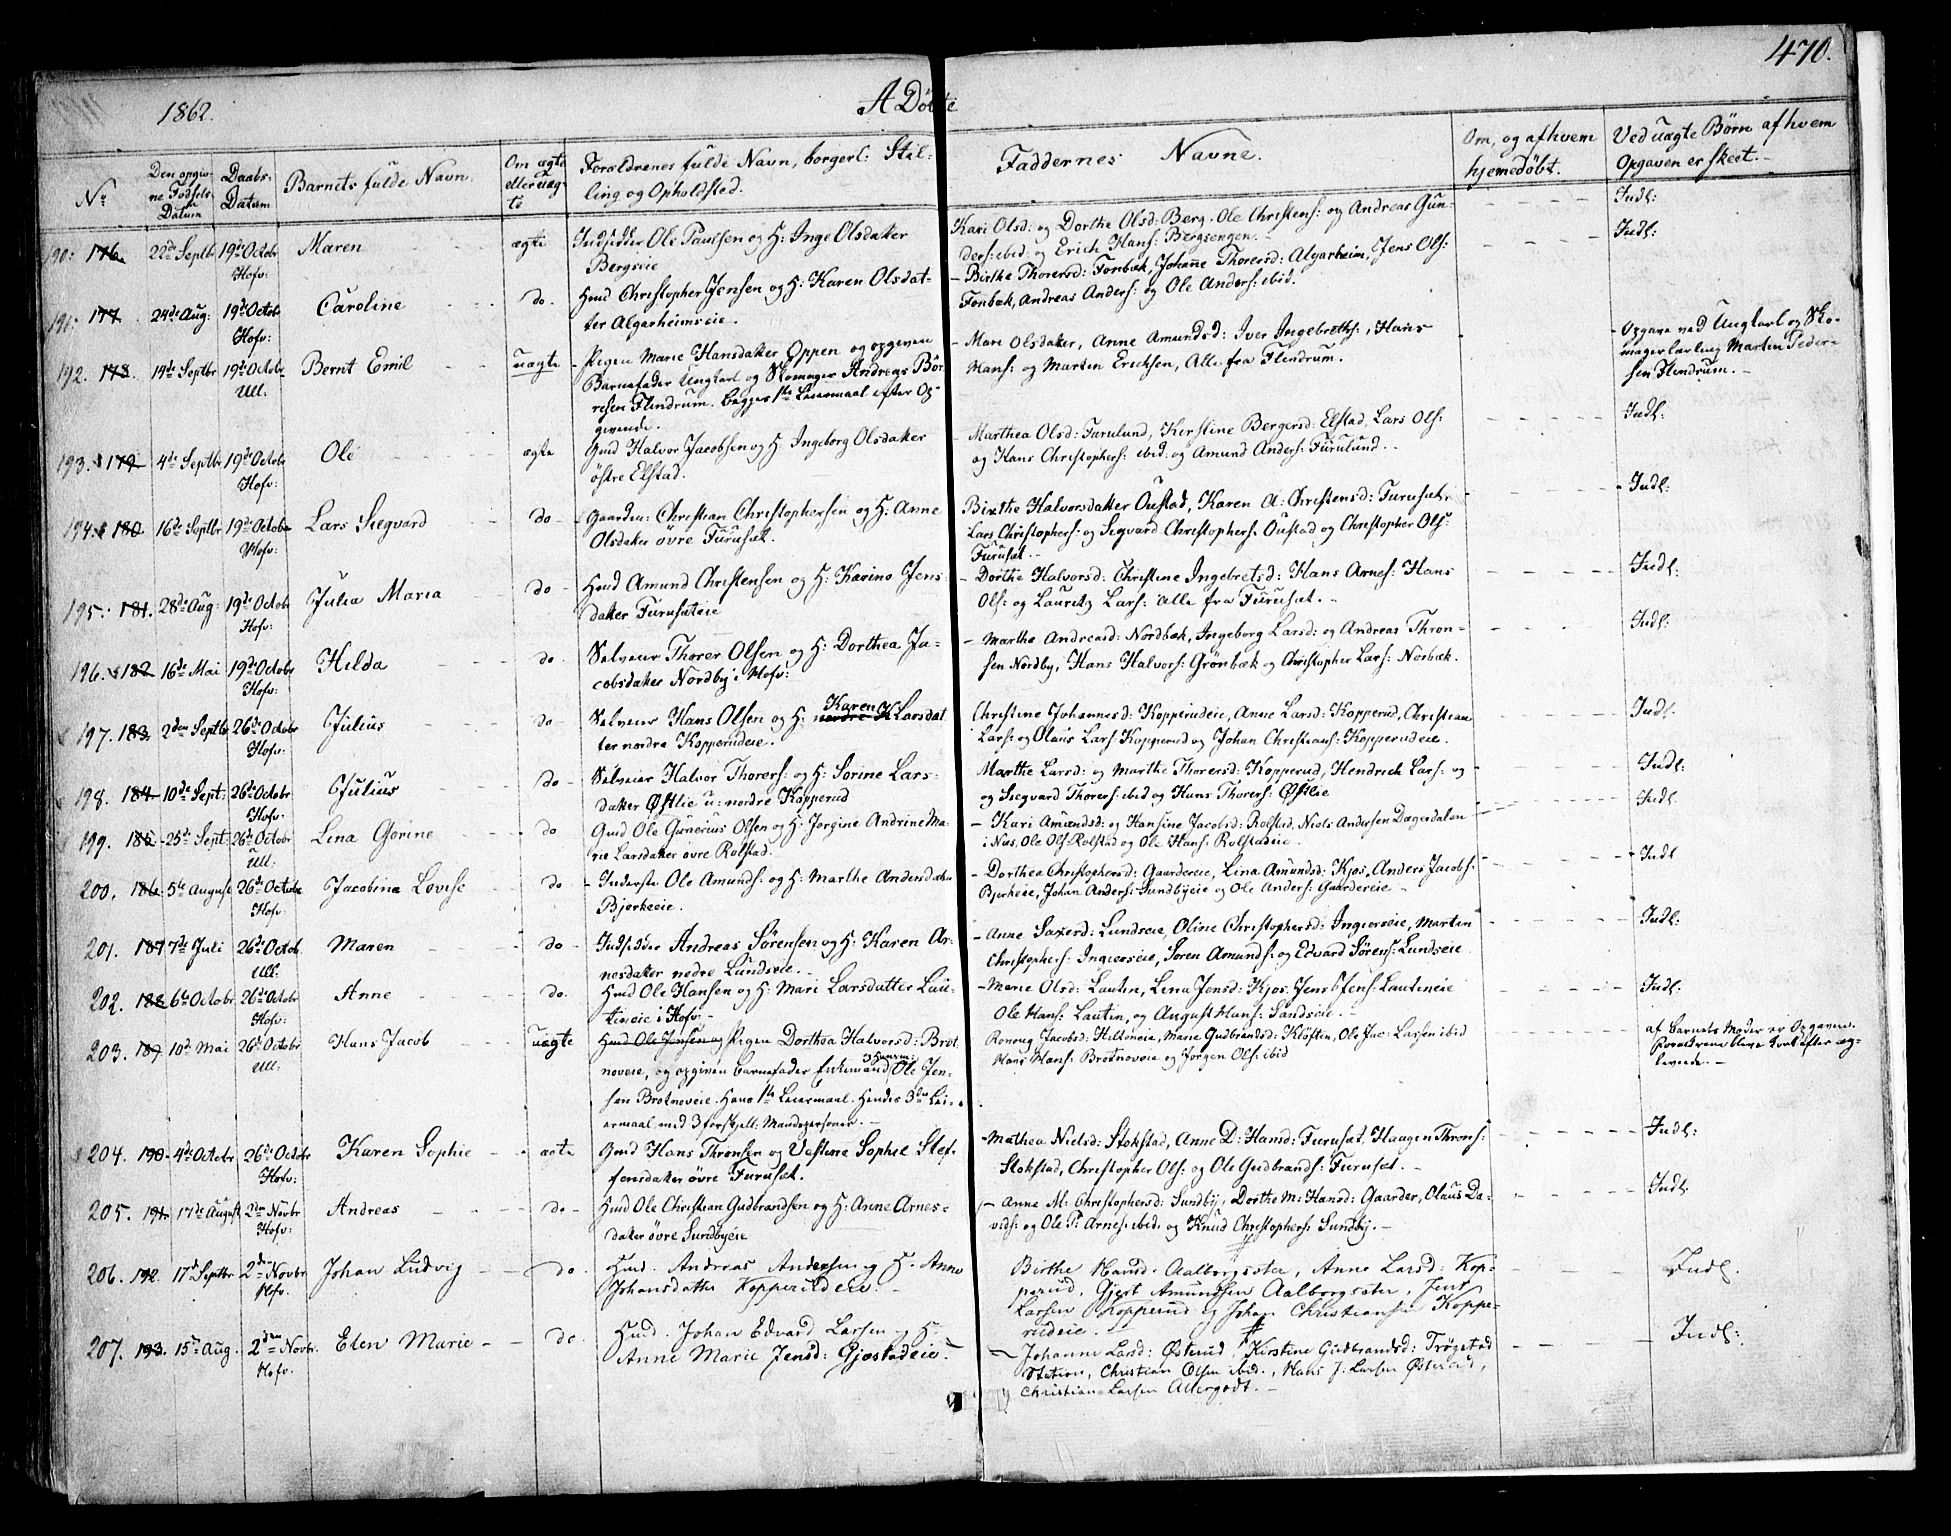 470.
1862.
A Döbte
No
Den opgivne Födsels Datum
Daabs-Datum
Barnets fulde Navn.
Om ægte eller uægte
Forældrenes fulde Navn, borgerl: Stilling og Opholdsted.
Faddernes Navne.
Om, og af hvem hjemedøbt.
Ved uægte Börn af hvem Opgaven er skeet.-
190: 176. 22de Septbr 19de Octobr Hofv: Maren ægte
Indsidder Ole Paulsen og H: Inge Olsdatter
Bergseie
Kari Olsd: og Dorthe Olsd: Berg. Ole Christens: og Andreas Gun-
ders: ibid: og Erich Hans: Bergsengen.-
Indl:
191. 177. 24de Aug: 19de Octobr Hofv: Caroline do.
Huusd Christopher Jensen og H: Karen Olsdat-
ter Algarheimseie.
- Birthe Thorersd: Fonbæk, Johanne Thorersd: Algarheim, Jens Ols:
Fonbæk, Andreas Anders: og Ole Anders: ibid.
Indl:
192. 178. 14de Septbr 19de Octobr Ull: Bernt Emil uægte
- Pigen Marie Hansdatter Oppen og opgiven
Barnefader Ungkarl og Skomager Andreas Bör-
resen Flendrum. begges 1ste Leiermaal efter Op-
givende.
- Mari Olsdatter, Anne Amundsd: Iver Ingebreths:, Hans
Hans: og Martin Ericksen, Alle fra Flendrum.
- Opgave ved Ungkarl og Sko-
magerlærling Martin Peder-
sen Flendrum. -
193. 179 4de Septbr 19de Octobr Hofv: Ole ægte
Gmd Halvor Jacobsen og H Ingeborg Olsdatter
östre Elstad.
- Marthea Olsd: Furulund, Kirstine Bergersd: Elstad, Lars Ols:
og Hans Christophers: ibid: og Amund Anders: Furulund.-
Indl:
194. 180 16de Septbr 19de Octobr Hofv: Lars Siegvard do
Gaardm: Christian Christophersen og H: Anne
Olsdatter övre Furuset.
Birthe Halvorsdatter Oustad, Karen A: Christensd: Furuset.
Lars Christophers: og Segvard Christophers: Oustad og Christopher Ols:
Furuset.-
Indl:
195. 181. 28de Aug: 19de Octobr Hofv: Julia Maria do
Huusd Amund Christensen og H: Karine Jens-
datter Furuseteie
- Dorthe Halvorsd: Christine Ingebretsd: Hans Arnes: Hans
Ols: og Lauritz Lars: alle fra Furuset.-
Indl:
196. 182 16de Mai 19de Octobr Hofv: Hilda do.
Selveier Thorer Olsen og H: Dorthea Ja-
cobsdatter Nordby i Hofv:
- Marthe Andreasd: Nordbæk, Ingeborg Larsd: og Andreas Thron-
sen Nordby, Hans Halvors: Grönbæk og Christopher Lars: Norbæk.
Indl:
197. 183. 2den Septbr 26de Octobr Hofv: Julius do
Selveier Hans Olsen og H: nordre K Karen Larsdat
ter nordre Kopperudeie.
Christine Johannesd: Kopperudeie, Anne Larsd: Kopperud, Christian
Lars: og Olaus Lars: Kopperud og Johan Christians: Kopperudeie.
Indl.
198. 184. 10de Sept: 26de Octobr Hofv: Julius do
Selveier Halvor Thorers: og H: Sorine Lars-
datter Østlie u: nordre Kopperud
Marthe Larsd: og Marthe Thorersd: Kopperud, Hendrich Lars: og
og Siegvard Thorers: ibid og Hans Thorers: Østlie
Indl:
199. 185. 25de Sept: 26de Octobr Ull: Lina Gorine do
Gmd Ole Gunerius Olsen og H: Jorgine Andrine Ma-
rie Larsdatter övre Rolstad.
- Kari Amundsd: og Hansine Jacobsd: Rolstad, Niels Andersen Dægerdalen
i Næs, Ole Ols: Rolstad og Ole Hans: Rolstadeie.
Indl
200. 186. 5te August 26de Octobr Hofv: Jacobina Lovise do
- Inderste Ole Amunds: og H: Marthe Andersdatter
Bjerkeeie.
- Dorthea Christophersd: Gaardereie, Lina Amundsd: Kjos, Anders Jacobs:
Bjerkeie, Johan Anders: Sundbyeie og Ole Anders: Gaardereie -
Indl
201. 187 7de Juli 26de Octob Ull. Maren do
- Indsidder Andreas Sörensen og H: Karen Ar-
nesdatter nedre Lundseie.
- Anne Saxerd: Lundseie, Oline Christophersd: Ingierseie, Martin
Christophers: Ingierseie, Sören Amunds: og Edvard Sörens: Lundseie
Indl:
202. 188 6te Octobr 26de Octobr Hofv: Anne do.
Huusd Ole Hansen og H: Mari Larsdatter Lau-
tineie i Hofv-
- Marie Olsd: Lautin, Lina Jensd: Kjos. Jens Jens: Lautineie
Ole Hans: Lautin, og August Hans: Sandseie. -
Indl:
203. 189 10de Mai 26de Octobr Ull: Hans Jacob uægte
Huusd Ole Jensen og Pigen Dorthea Halvorsd: Brot
noveie, og opgiven Barnefader Enkemand Ole Jen-
sen Brotnoveie. Hans 1ste Leiermaal. Hendes 3die Lei-
ermaal med 3 forskjell: Mandspersoner. -
Ronoug Jacobsd: Hilknieie, Marie Gudbrandsd: Klöften, Ole Jac: Larsen ibid
Hans Hans: Brotnoveie og Jörgen Ols: ibid
af Barnets Moder er Opgaven.
Forældrene bleve kort efter æg-
teviede.-
204. 190. 4de Octobr 26de Octobr Hofv: Karen Sophie ægte
Gmd Hans Thronsen og Vestine Sophie Stef-
fensdatter övre Furuset.
- Mathea Nielsd: Stokstad, Anne D: Hansd: Furuset, Haagen Throns:
Stokstad, Christopher Ols: og Ole Gudbrands: Furuset.-
Indl:
205. 191. 17de August 2den Novbr Hofv: Andreas do
Huusd Ole Christian Gudbrandsen og H: Anne Arnes-
datter övre Sundbyeie
- Anne M: Christophersd: Sundby, Dorthe M: Hansd: Gaarder, Olaus Da-
vids: og Ole P: Arnes: ibid: og Knud Christophers: Sundby. -
Indl
206. 192. 17de Septbr 2den Novbr Hofv. Johan Ludvig do.
Huusd. Andreas Andersen og H. Anne
Johansdatter Kopperudeie.
Birthe Hansd. Aalborgseter, Anne Larsd: Kop-
perud, Gjert Amundsen Aalborgseter, Jens
Larsen Kopperud og Johan Christiansen Koppe-
rudeie. -
Indl.
207. 193. 15de Aug. 2den Novbr. Hofv. Elen Marie do
Huusd. Johan Edvard Larsen og H.
Anne Marie Jensd: Gjestadeie.
- Johanne Larsd: Østerud, Kirstine Gudbrandsd: Trögstad
Station, Christian Olsen ibid., Hans J: Larsen Østerud,
Christian Larsen Allergodt.-
Indl: